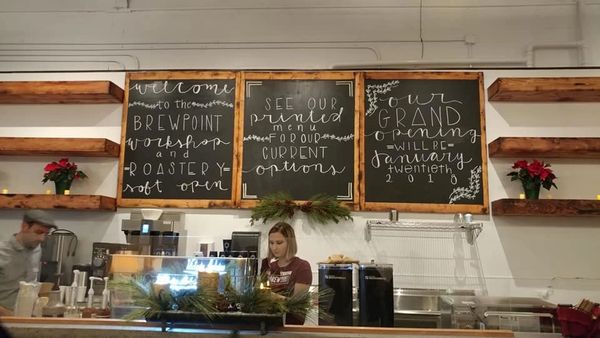 welcome
to the
BREWPOINT
workshop
and
ROASTERY
soft open
SEE OUR
printed
menu
FOR OUR
CURRENT
options
our
GRAND
opening
WILL BE
January
twentieth
2019